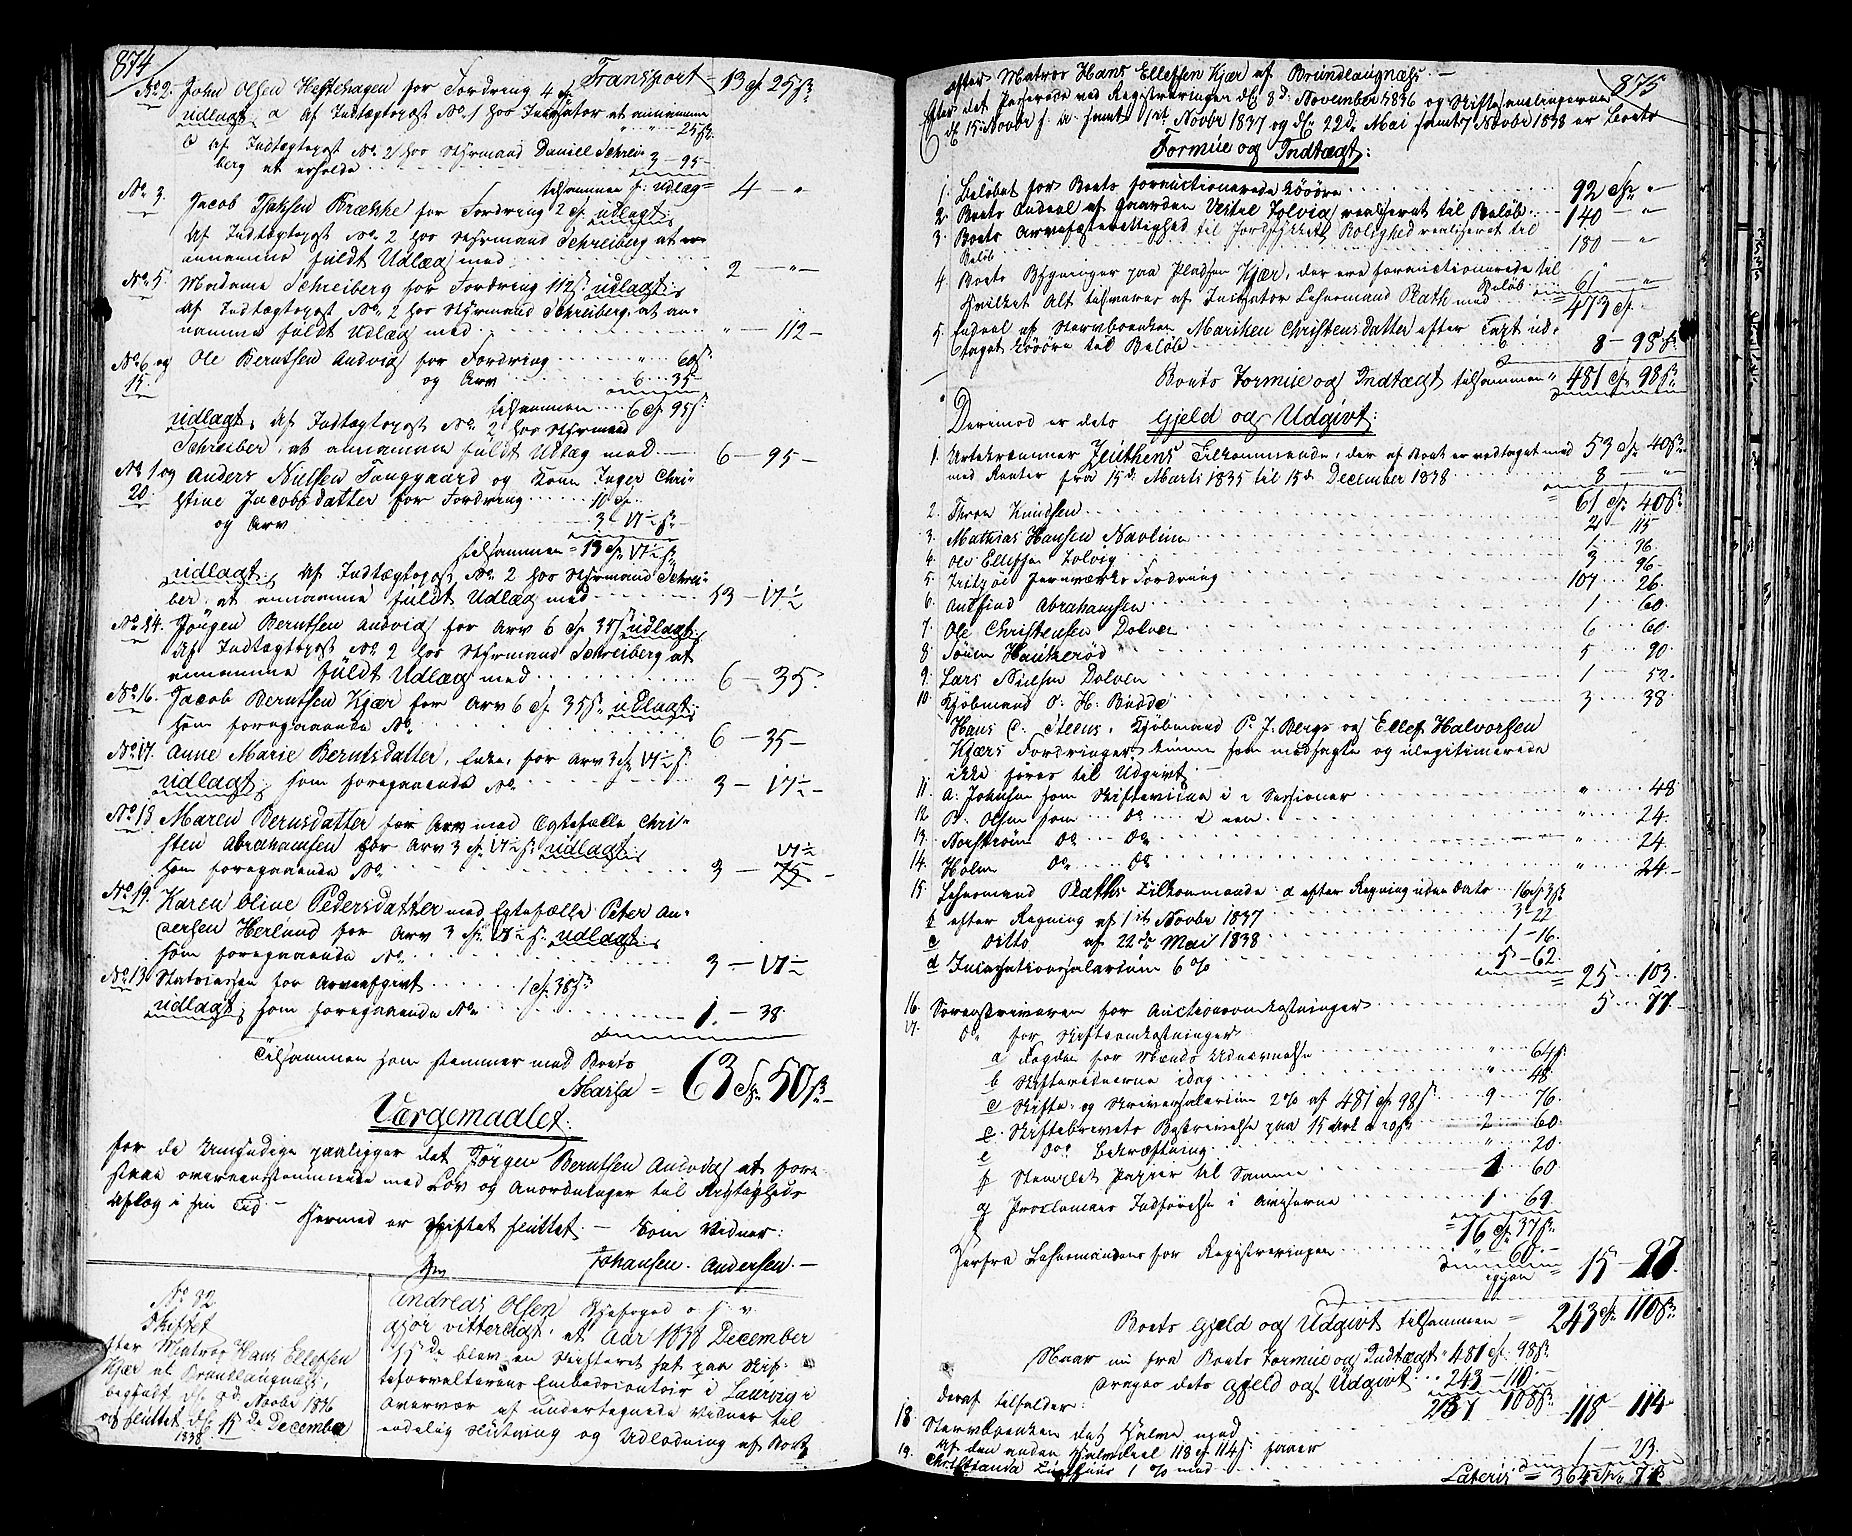 874
Transport = 13 Sp 25 ß.
No 2. John Olsen Hestehagen for Fordring 4 Sp
udlagt, a af Indtægtspost No 1 hos Incassator at annamme
25 ß.
b af Indtægtspost No 2 hos Styrmand Daniel Schrei-
berg at erholde 3 - 95 -
tilsammen f: Udlæg = 4 - " -
No 3. Jacob Isaksen Brække for Fordring 2 Sp. udlagt,
Af Indtægtspost No 2 hos Styrmand Schreiberg at an-
namme fuldt Udlæg med 2 - " -
No 5. Madame Schreiberg for Fordring 112 ß. udlagt,
Af Indtægtspost No 2 hos Styrmand Schreiberg, at an-
namme fuldt Udlæg med " - 112 -
No 6 og Ole Berntsen Andvig for Fordring " 60 ß
15. og Arv 6 35 -
tilsammen 6 Sp 95 ß.
udlagt, Af Indtægtspost No 2 hos Styrmand
Schreiber, at annamme fuldt Udlæg med 6 - 95 -
No 1 og Anders Nielsen Tanggaard og Kone Inger Chri-
20. stine Jacobsdatter for Fordring 10 Sp.
og Arv 3 - 17½ ß
tilsammen = 13 Sp. 17½ ß.
udlagt, Af Indtægtspost No 2 hos Styrmand Schrei-
ber, at annamme fuldt Udlæg med 13 - 17½
No 14. Jörgen Berntsen Andvig for Arv 6 Sp 35 ß udlagt,
Af Indtægtspost No 2 hos Styrmand Schreiberg at
annamme fuldt Udlæg med 6 - 35.
No 16. Jacob Berntsen Kjær for Arv 6 Sp. 35 ß. udlagt,
som foregaaende No 6 - 35 -
No 17. Anne Marie Berntsdatter, Enke, for Arv 3 Sp 17½ ß.
udlagt, som foregaaende No 3 - 17½ -
No 18 Maren Bernsdatter for Arv med Egtefælle Chri-
sten Abrahamsen for Arv 3 Sp 17½ ß. udlagt, 17½
som foregaaende No 3 - 75 -
No 19. Karen Oline Pedersdatter med Egtefælle Peter An-
dersen Herlund for Arv 3 Sp. 17½ ß. udlagt,
som foregaaende No 3 - 17½
No 13 Statscassen for Arveafgivt 1 Sp. 38 ß
udlagt, som foregaaende No 1. - 38.
Tilsammen som stemmer med Boets
Massa = 63 Sp. 50 ß -
Værgemaalet.
for de Umyndige paaligger det Jörgen Berntsen Andvig at fore-
staae overeensstemmende med Lov og Anordninger til Rigtigheds
Aflæg i sin Tid -
Hermed er Skiftet sluttet. - Som Vidner:
Johansen. Andersen. -
No 82
Skiftet
efter Matros Hans Ellefsen
Kjær af Brundlaugnæs,
begyndt d. 8d Novbr 1836
og sluttet d. 15de December
1838
Andreas Olsen Byefoged o. s. v.
gjør vitterligt, at Aar 1838 December
15de blev en Skifteret sat paa Skif-
teforvalterens Embedscontoir i Laurvig i
Overvær af undertegnede Vidner til
endelig Slutning og Udlodning af Boet
875
efter Matros Hans Ellefsen Kjær af Brundlaugnæs. -
Efter det Passerede ved Registreringen d. 8d: November 1836 og Skiftesamlingerne
d. 15 Novbr s. A. samt 1ste Novbr 1837 og d. 22de Mai samt 7 Novbr 1838 er Boets
Formue og Indtægt:
1. Beløbet for Boets forauctionerede Løsøre 92 Sp. " -
2. Boets Andeel af Gaarden Vestre Tolvig realiseret til Beløb 140 - " -
3. Boets Arvefæsterettighed til Jordstykket Rolighed realiseret til
Beløb 180 - "
4. Boets Bygninger paa Pladsen Kjær, der ere forauctionerede til
Beløb 61 - " -
Hvilket Alt tilsvares af Incassator Lehnsmand Plath med 473 Sp.
5. Andeel af Stervboenken Mariken Christensdatter efter Taxt ud-
taget Løsøre til Beløb 8 - 98 ß
Boets Formue og Indtægt tilsammen = 481 Sp. 98 ß.
Derimod er dets Gjeld og Udgivt:
1. Urtekræmmer Zeuthens Tilkommende, der af Boet er vedtaget med 53 Sp. 40 ß
med Renter fra 15d. Marts 1835 til 15d. December 1838 8 "
= 61 Sp. 40 ß
2. Thron Knudsen 2 - 115
3. Mathias Hansen Navlim 1 96.
4. Ole Ellefsen Tolvig 3 96 -
5. Fritzöe Jernværks Fordring 107 26.
6. Antfind Abrahamsen 1 60.
7. Ole Christensen Dolven 6 60.
8. Sören Haukeröd 5 90
9. Lars Nielsen Dolven 1 52.
10. Kjøbmand O. H. Budde 3 38
Hans C. Steens, Kjøbmand P. J. Bergs og Ellef Halvorsen
Kjærs Fordringer kunne som modsagte og ulegitimerede
ikke føres til Udgivt.
11. A. Johnsen som Skiftevidne i 2 Sessioner " 48
12. B. Olsen som do i een " 24.
13. Norström do do " 24.
14. Holm do do " 24. -
15. Lehnsmand Plaths Tilkommende a efter Regning uden Dato 16 Sp. 3 ß
b efter Regning af 1ste Novbr 1837 3 - 22
c ditto af 22de Mai 1838 1 - 16.
d Incassationssalarium 6 % 5 - 62.
= 25 103.
16. Sorenskriveren for Auctionsomkostninger 5 77 -
17. do for Skifteomkostninger
a Fogden for Mænds Udnævnelse " 64 ß
b Skiftevidnerne idag " 48.
c Skifte- og Skriversalarium 2 % af 481 Sp. 98 ß 9 76.
d Skiftebrevets Beskrivelse paa 15 Ark a 20 ß 2 60.
e do Bekræftning " 20
f Stemplet Papier til Samme 1 60
g Proclamas Indførelse i Aviserne 1 69
= 16 Sp. 37 ß.
Herfra Lehnsmandens for Registreringen " 60. -
igjen = 15 - 97
Boets Gjeld og Udgivt tilsammen = 243 Sp. 110 ß.
Naar nu fra Boets Formue og Indtægt 481 Sp. 98 ß.
drages dets Gjeld og Udgivt 243 - 110 -
237 108 ß
deraf tilfalder:
18. Stervboenken det Halve med 118 114.
Af den anden Halvdeel 118 Sp. 114 ß. faaer
19. Christianda Tugthuus 1 % med 1 - 23.
Lateris = 364 Sp. 7 ß